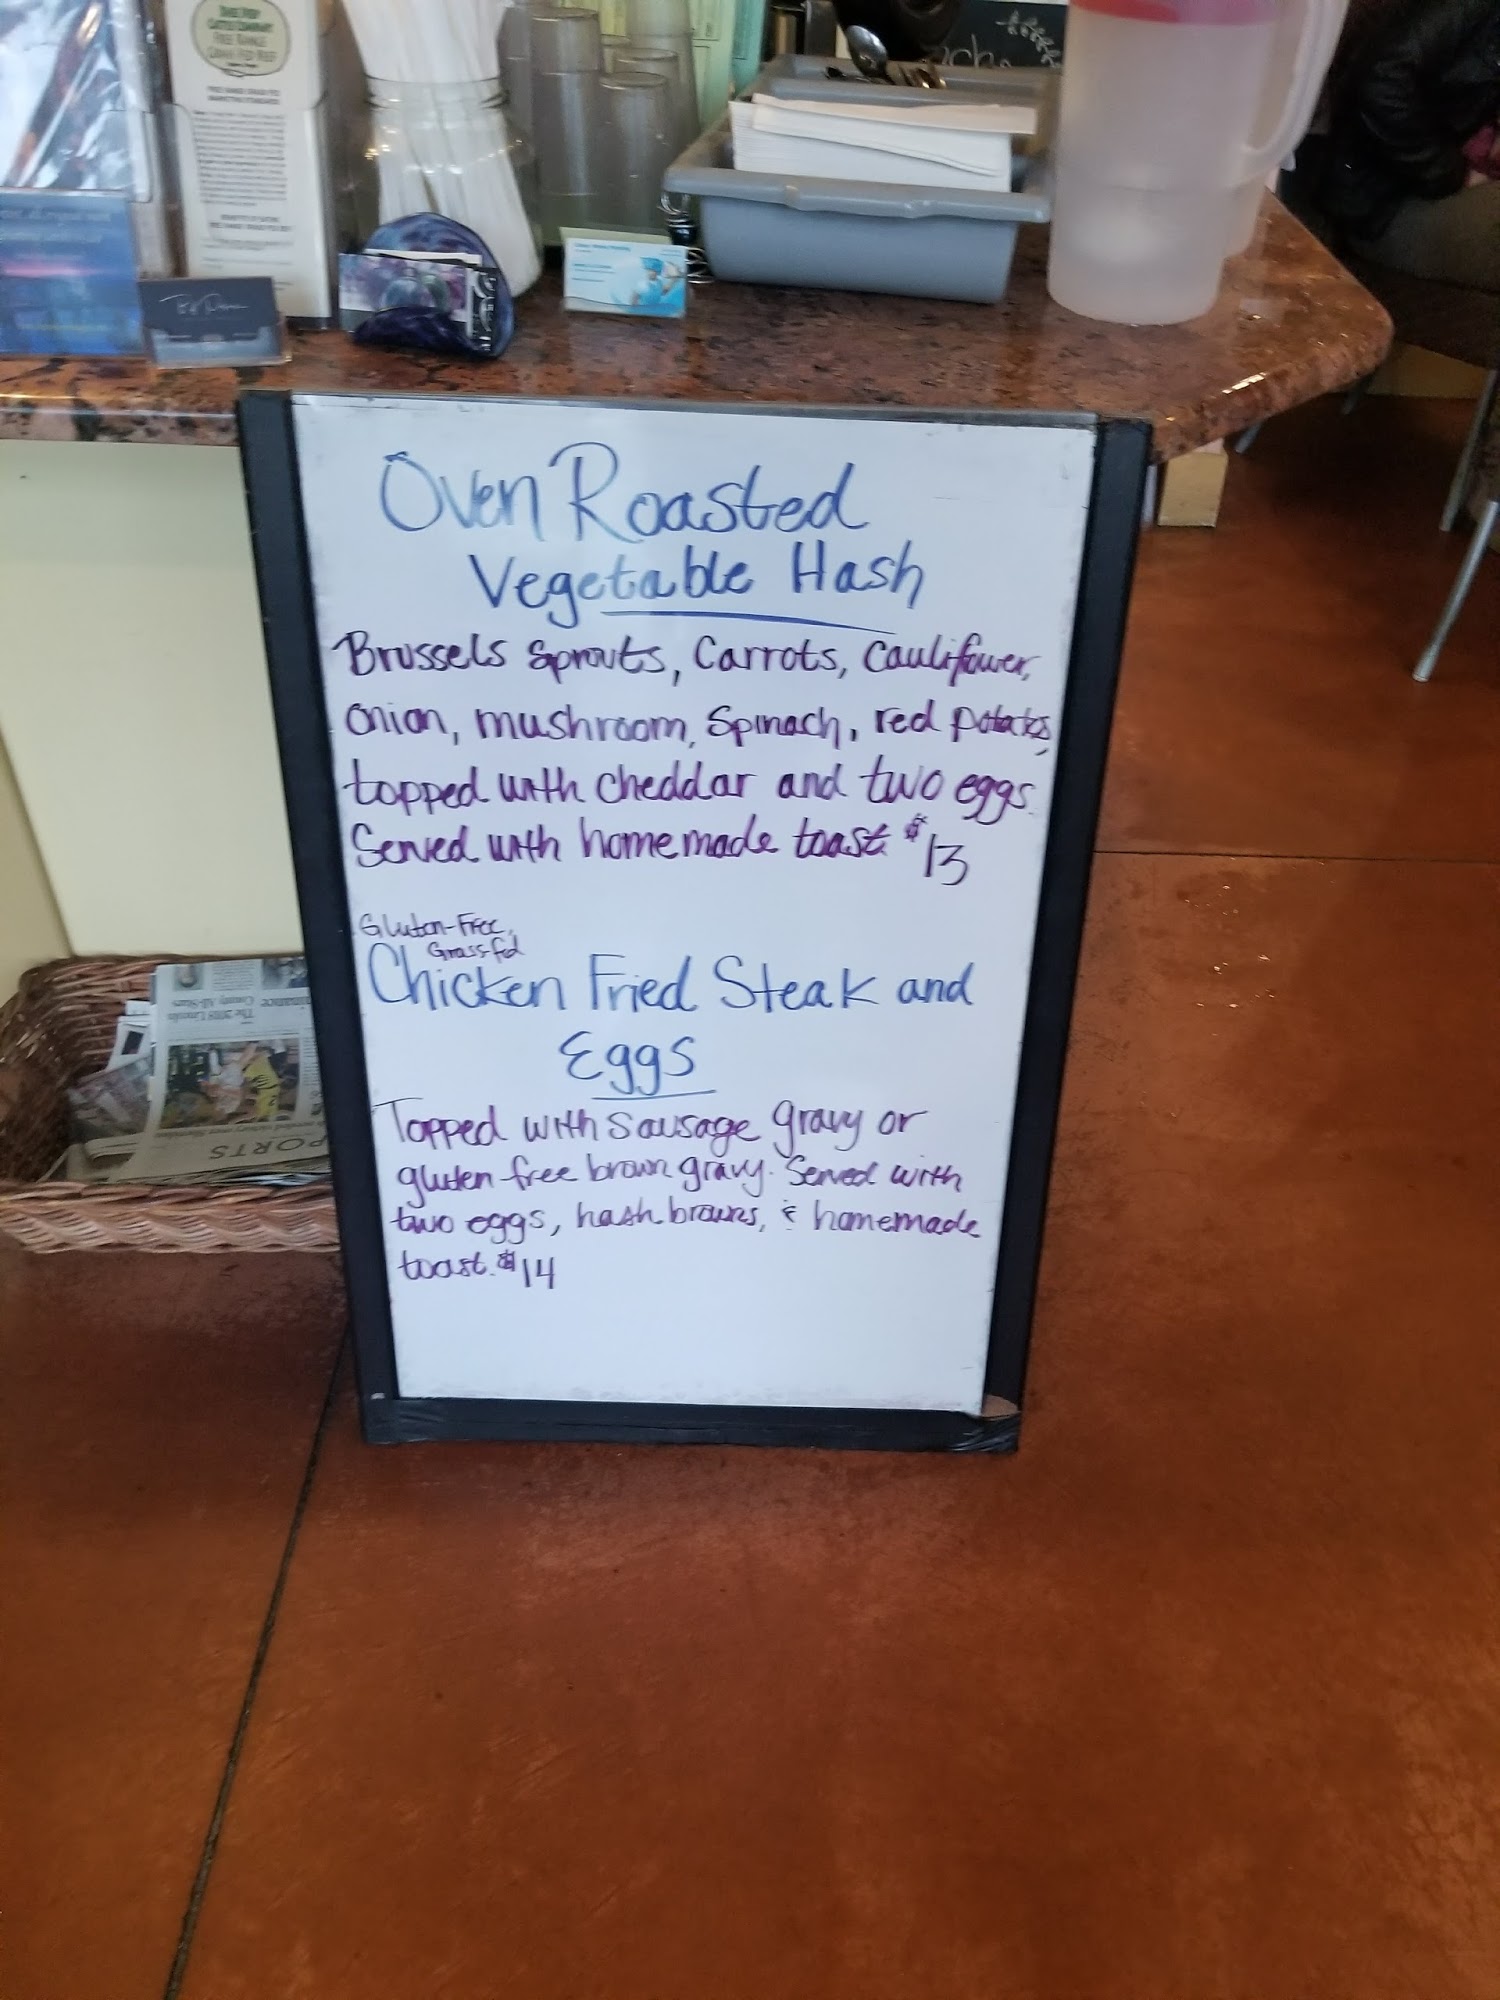 FREE RANGE
GRASS FED BEEF
Oven Roasted
Vegetable Hash
Brussels Sprouts, Carrots, Cauliflower,
onion, mushroom, Spinach, red potatoes,
topped with cheddar and two eggs.
Served with homemade toast. $13
Gluten-Free,
Grass-fed
Chicken Fried Steak and
Eggs
Topped with sausage gravy or
gluten-free brown gravy. Served with
two eggs, hash browns, & homemade
toast. $14
The 2019 Lincoln
County All-Stars
SPORTS